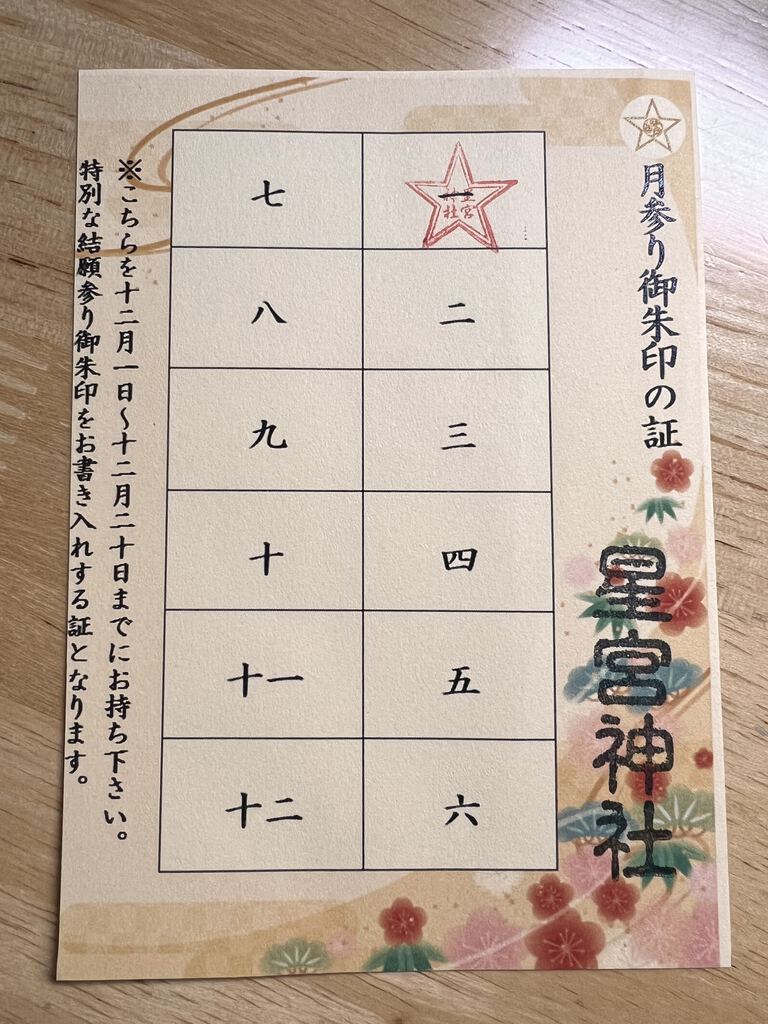 月参り御朱印の証
星宮神社
一
星宮
神社
二
三
四
五
六
七
八
九
十
十一
十二
※こちらを十二月一日～十二月二十日までにお持ち下さい。
特別な結願参り御朱印をお書き入れする証となります。